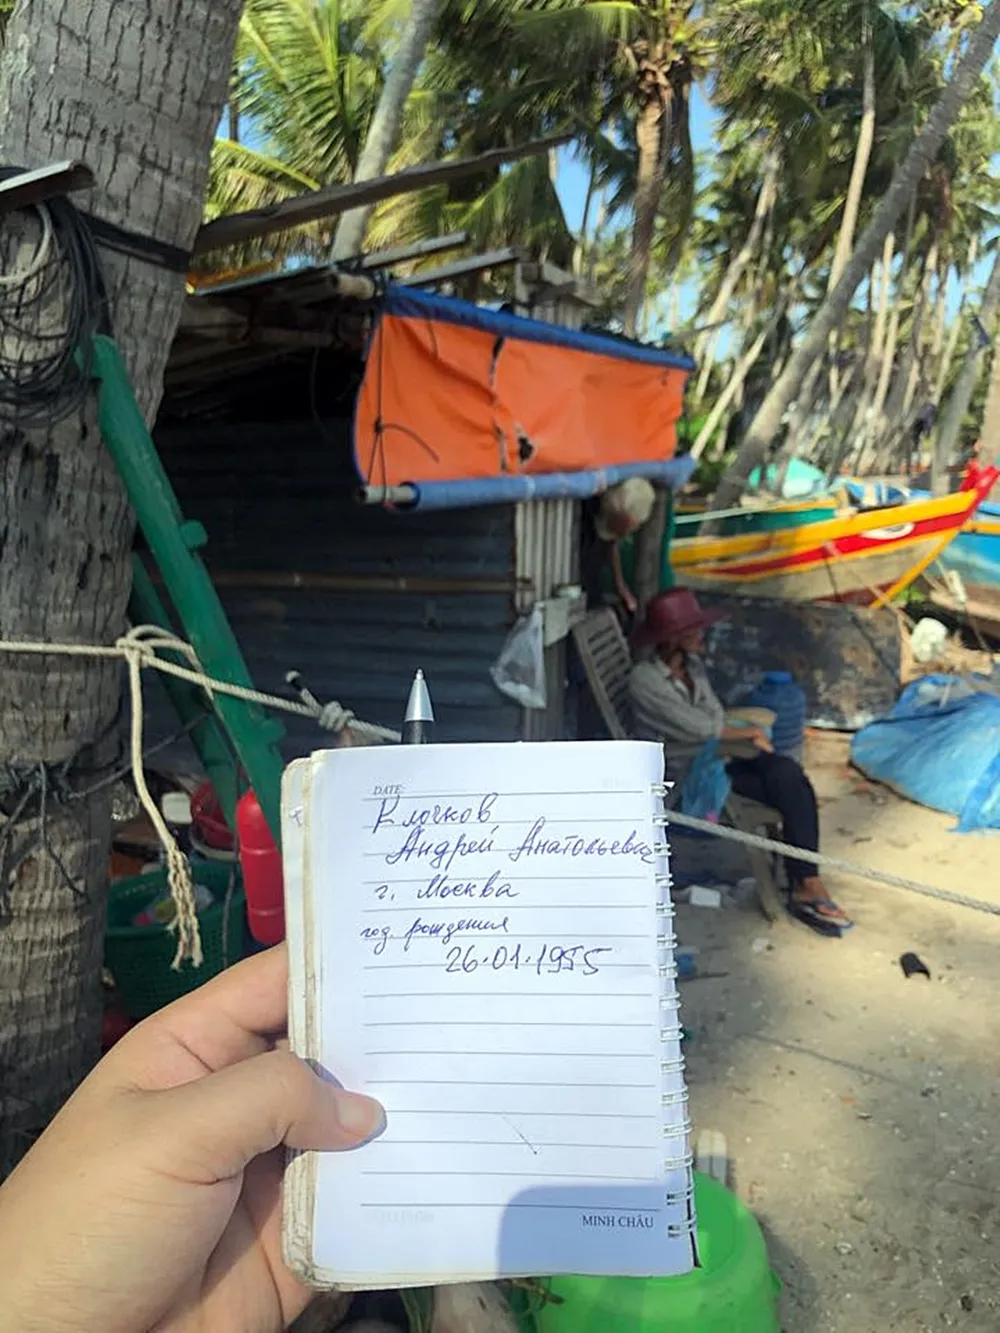 DATE:
Клочков
Андрей Анатольевич
г. Москва
год. рождения
26.01.1955
MINH CHÂU